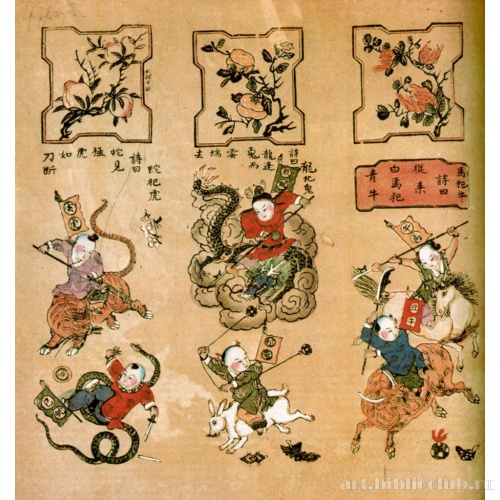 馬犯牛
詩曰
從來
白馬犯
青牛
龍犯兔
詩曰
龍逢
兔而
雲端
去
蛇犯虎
詩曰
蛇見
猛
虎
如
刀斷
art.biblioclub.ru